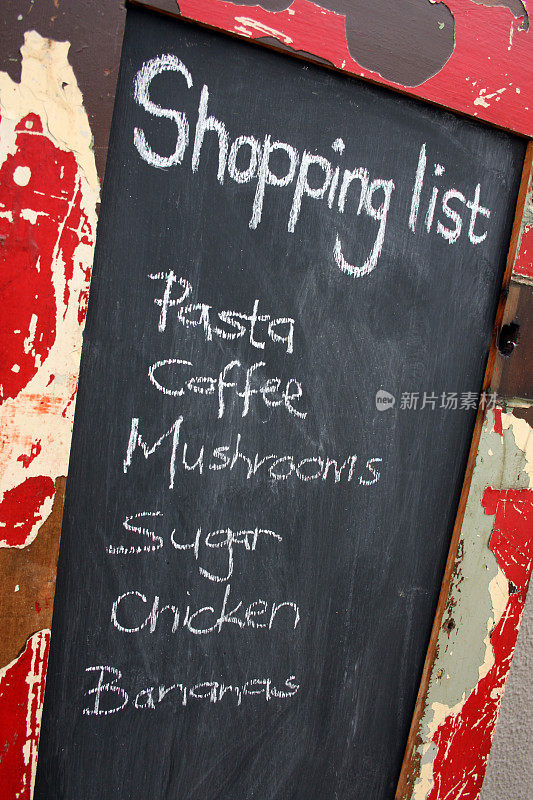 Shopping list
Pasta
Coffee
Mushrooms
Sugar
Chicken
Bananas
new 新片场素材